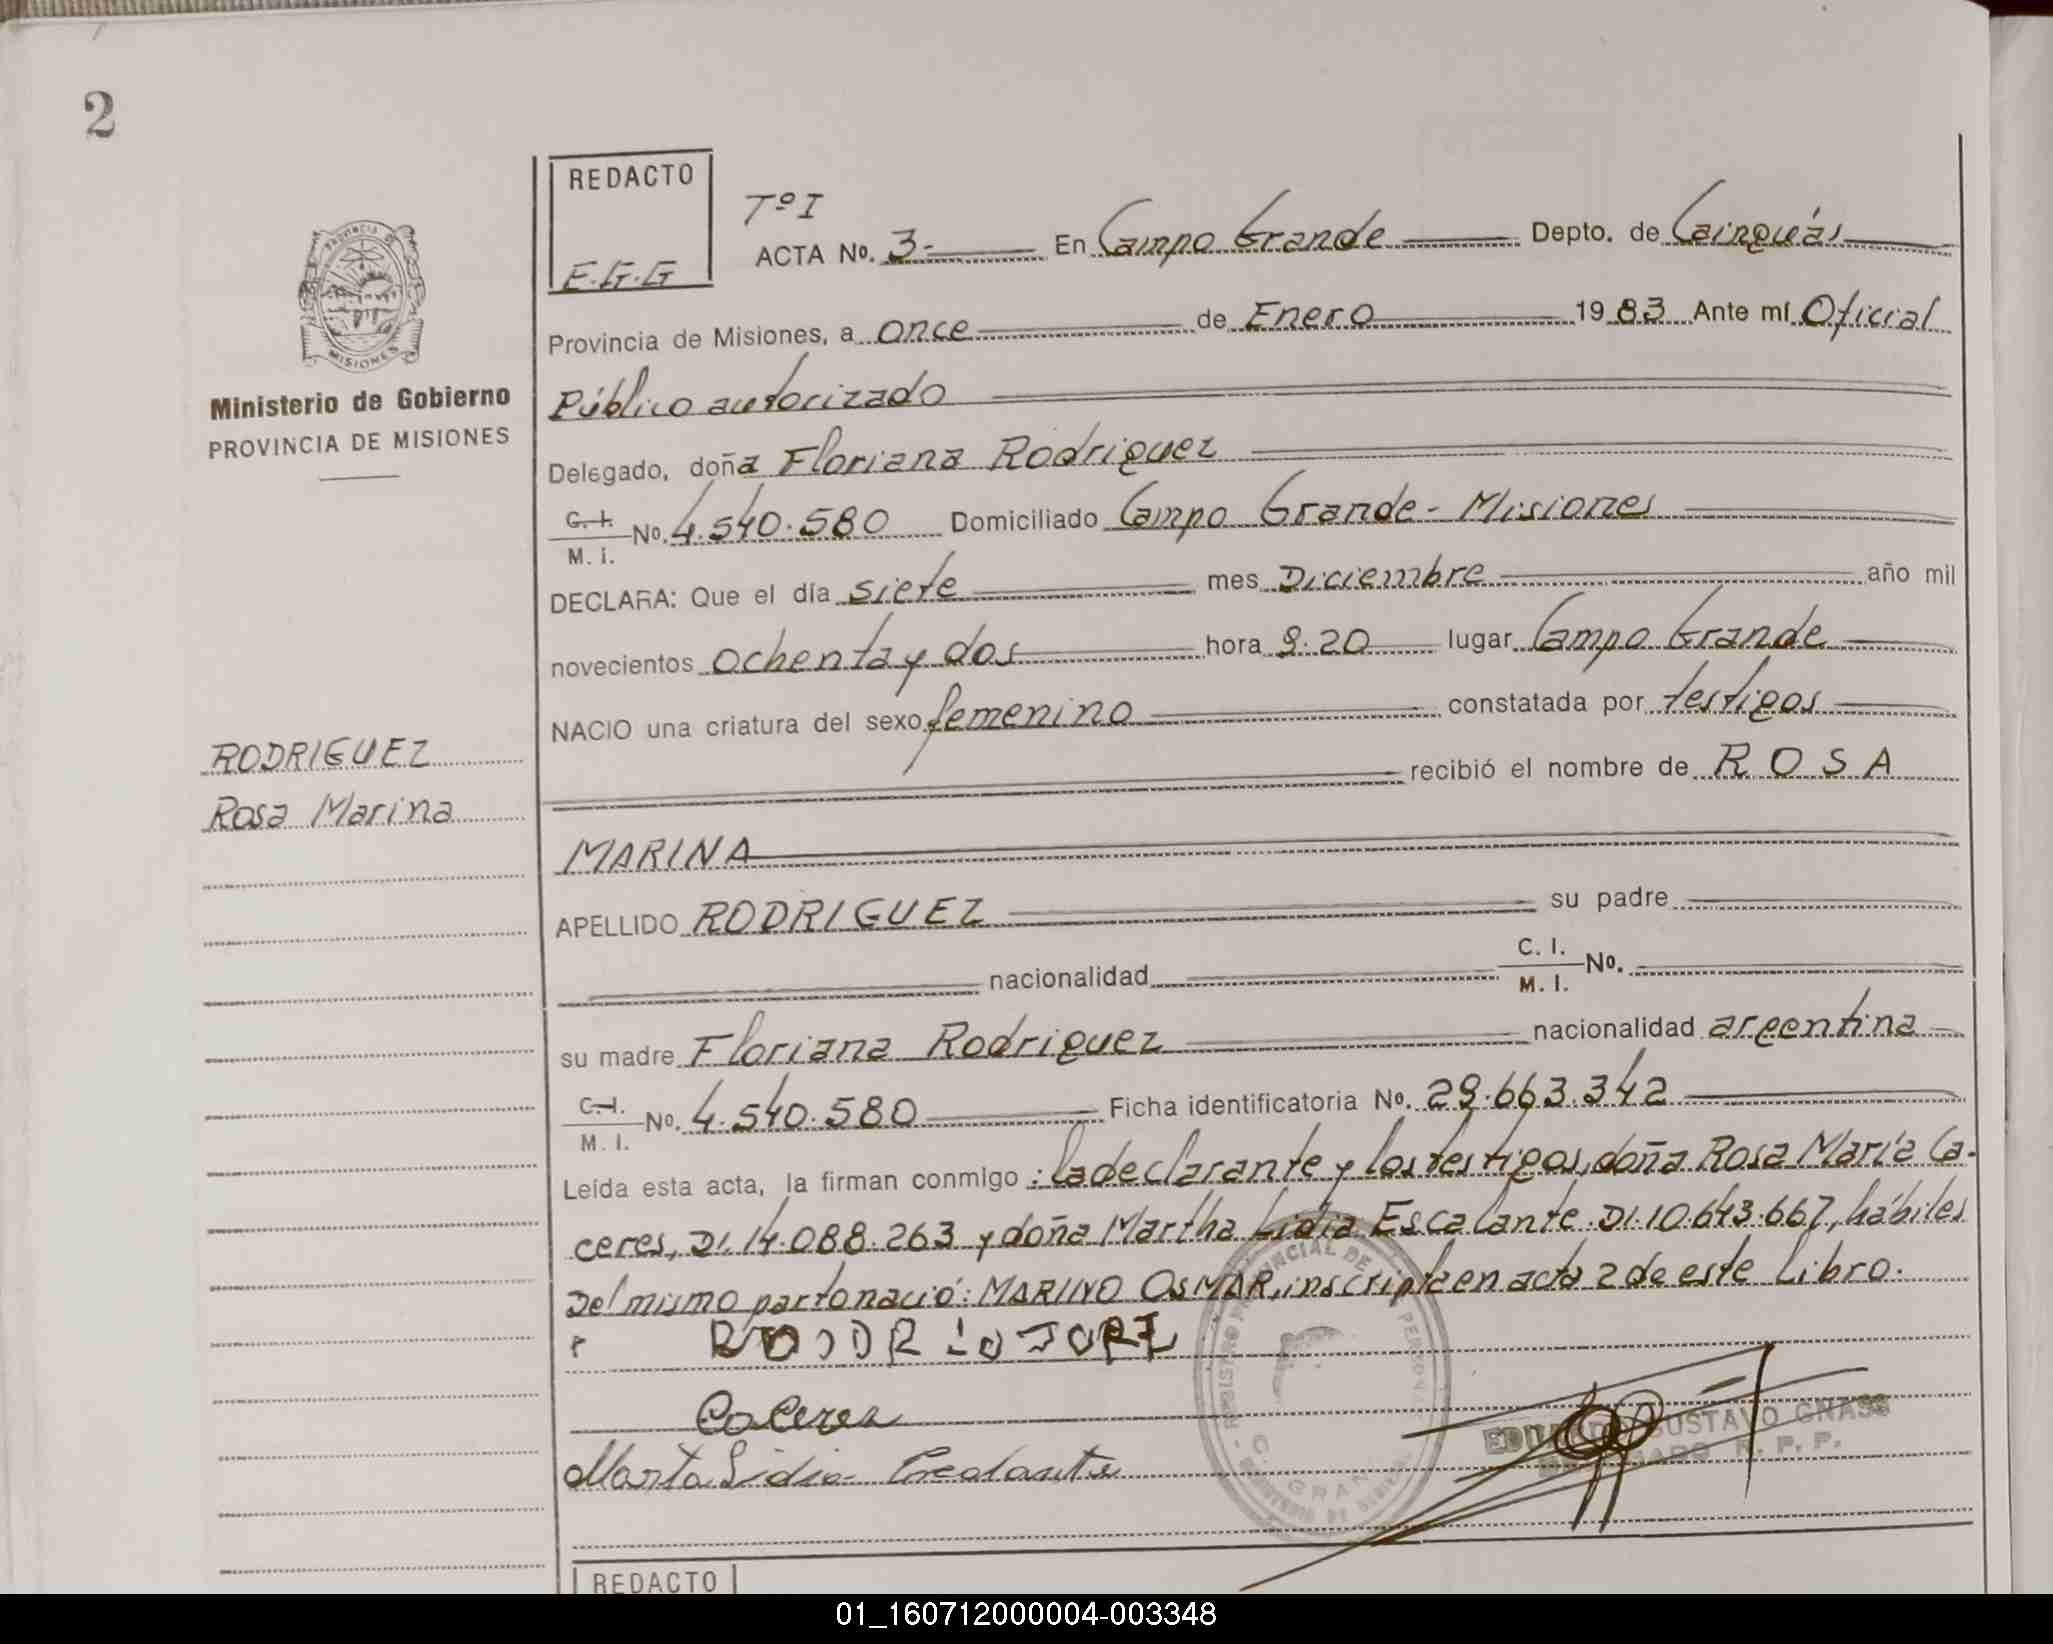 2
REDACTO
E.G.G
PROVINCIA DE
MISIONES
Ministerio de Gobierno
PROVINCIA DE MISIONES
RODRIGUEZ
Rosa Marina
Tº I
ACTA Nº. 3- En Campo Grande Depto. de Cainguás
Provincia de Misiones, a once de Enero 1983 Ante mí Oficial
Público autorizado
Delegado, doña Floriana Rodriguez
C. I. / M. I. Nº. 4.540.580 Domiciliado Campo Grande - Misiones
DECLARA: Que el día siete mes Diciembre año mil
novecientos ochenta y dos hora 9.20 lugar Campo Grande
NACIO una criatura del sexo femenino constatada por testigos
recibió el nombre de ROSA
MARINA
APELLIDO RODRIGUEZ su padre
nacionalidad C. I. / M. I. Nº.
su madre Floriana Rodriguez nacionalidad argentina
C. I. / M. I. Nº. 4.540.580 Ficha identificatoria Nº. 29.663.342
Leída esta acta, la firman conmigo: la declarante y los testigos, doña Rosa María Ca-
ceres, DI. 14.088.263 y doña Martha Lidia Escalante. DI. 10.643.667, hábiles
Del mismo parto nació: MARINO OSMAR, inscripta en acta 2 de este Libro.
Caceres
Marta Lidia Escalante
EDUARDO GUSTAVO GNASS
R. P. P.
REDACTO
01_160712000004-003348